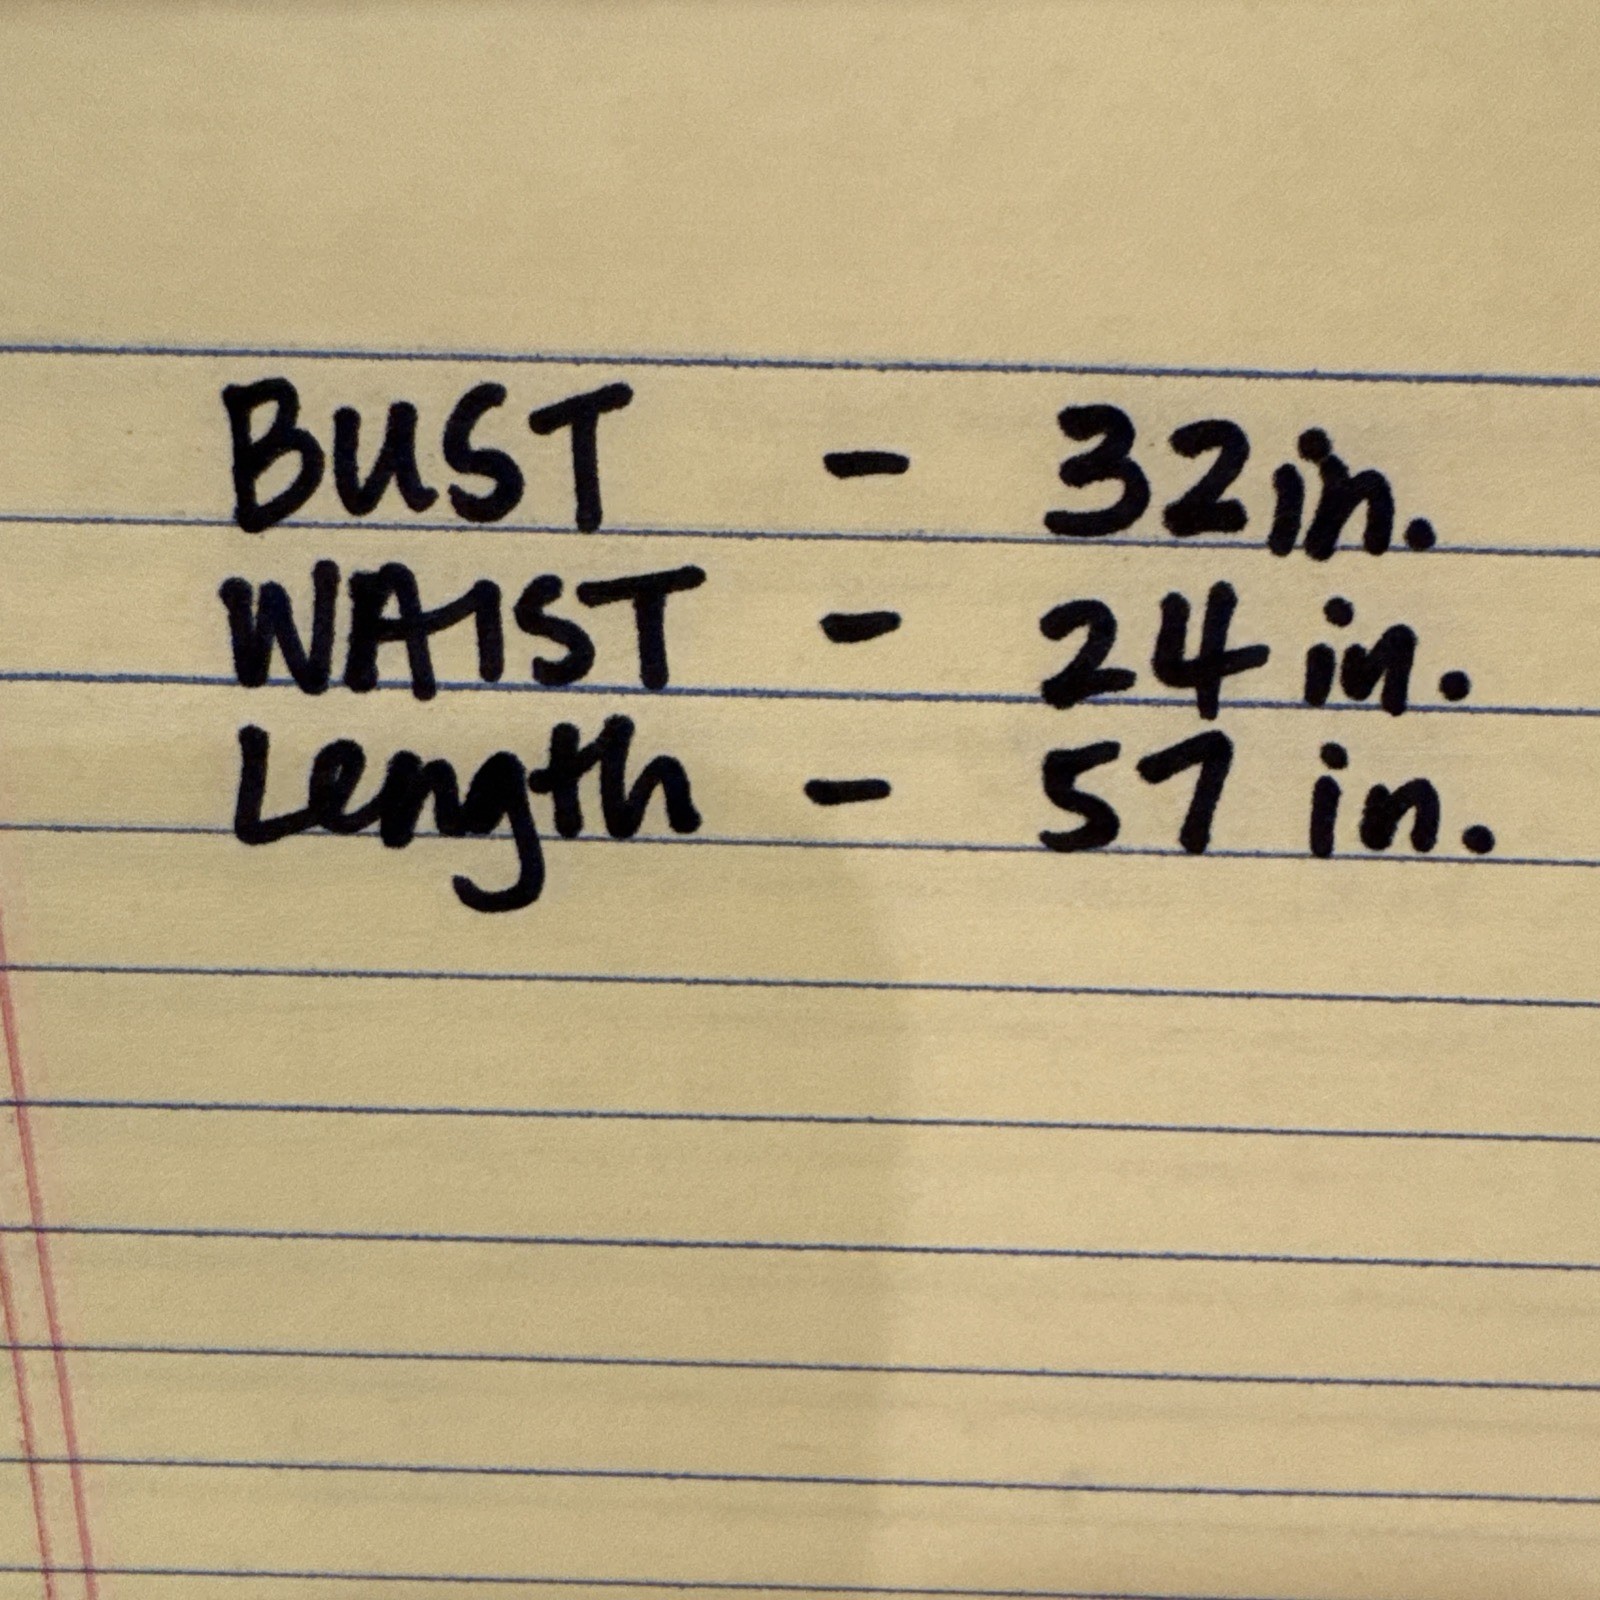 BUST - 32in.
WAIST - 24 in.
Length - 57 in.